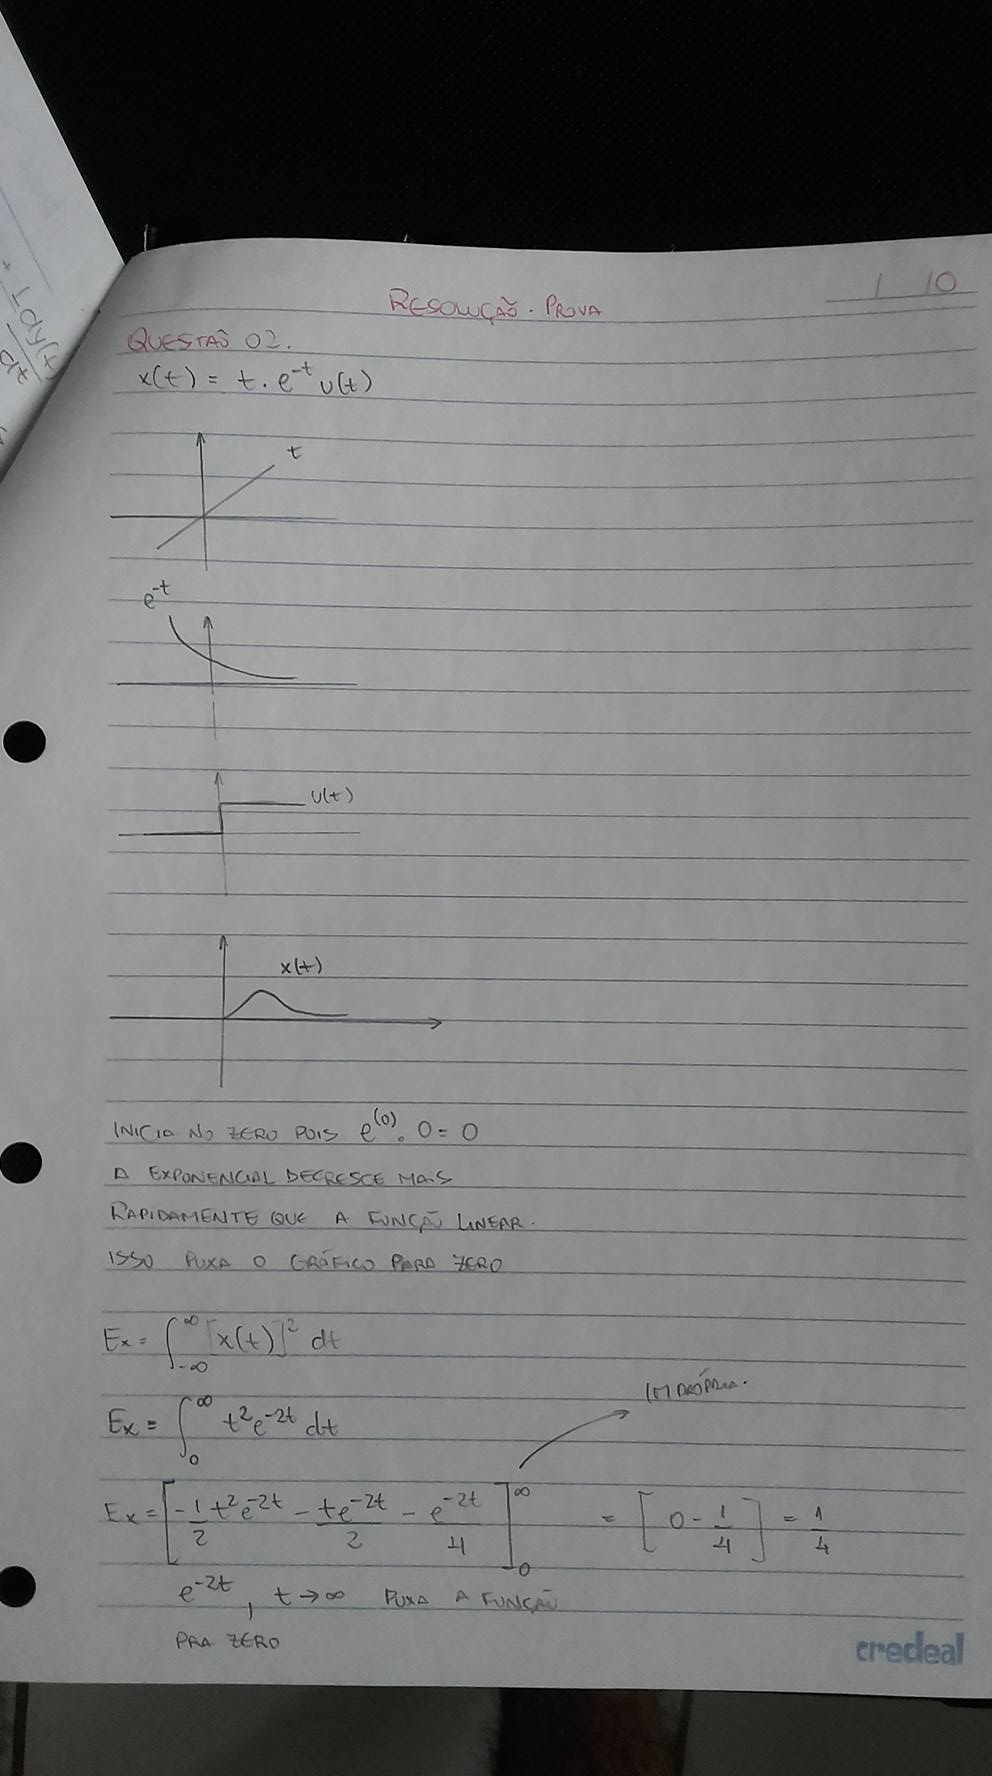 + 1 dy(t)
dt
/ 10
RESOLUÇÃO. PROVA
QUESTÃO 02.
x(t) = t. e^-t u(t)
t
e^-t
u(t)
x(t)
INICIA NO ZERO POIS e^(0). 0 = 0
A EXPONENCIAL DECRESCE MAIS
RAPIDAMENTE QUE A FUNÇÃO LINEAR.
ISSO PUXA O GRÁFICO PARA ZERO
Ex = ∫_-∞^∞ [x(t)]² dt
IMPRÓPRIA.
Ex = ∫_0^∞ t²e^-2t dt
Ex = [-1/2 t²e^-2t - te^-2t/2 - e^-2t/4]_0^∞ = [0 - 1/4] = 1/4
e^-2t, t→∞ PUXA A FUNÇÃO
PRA ZERO
credeal